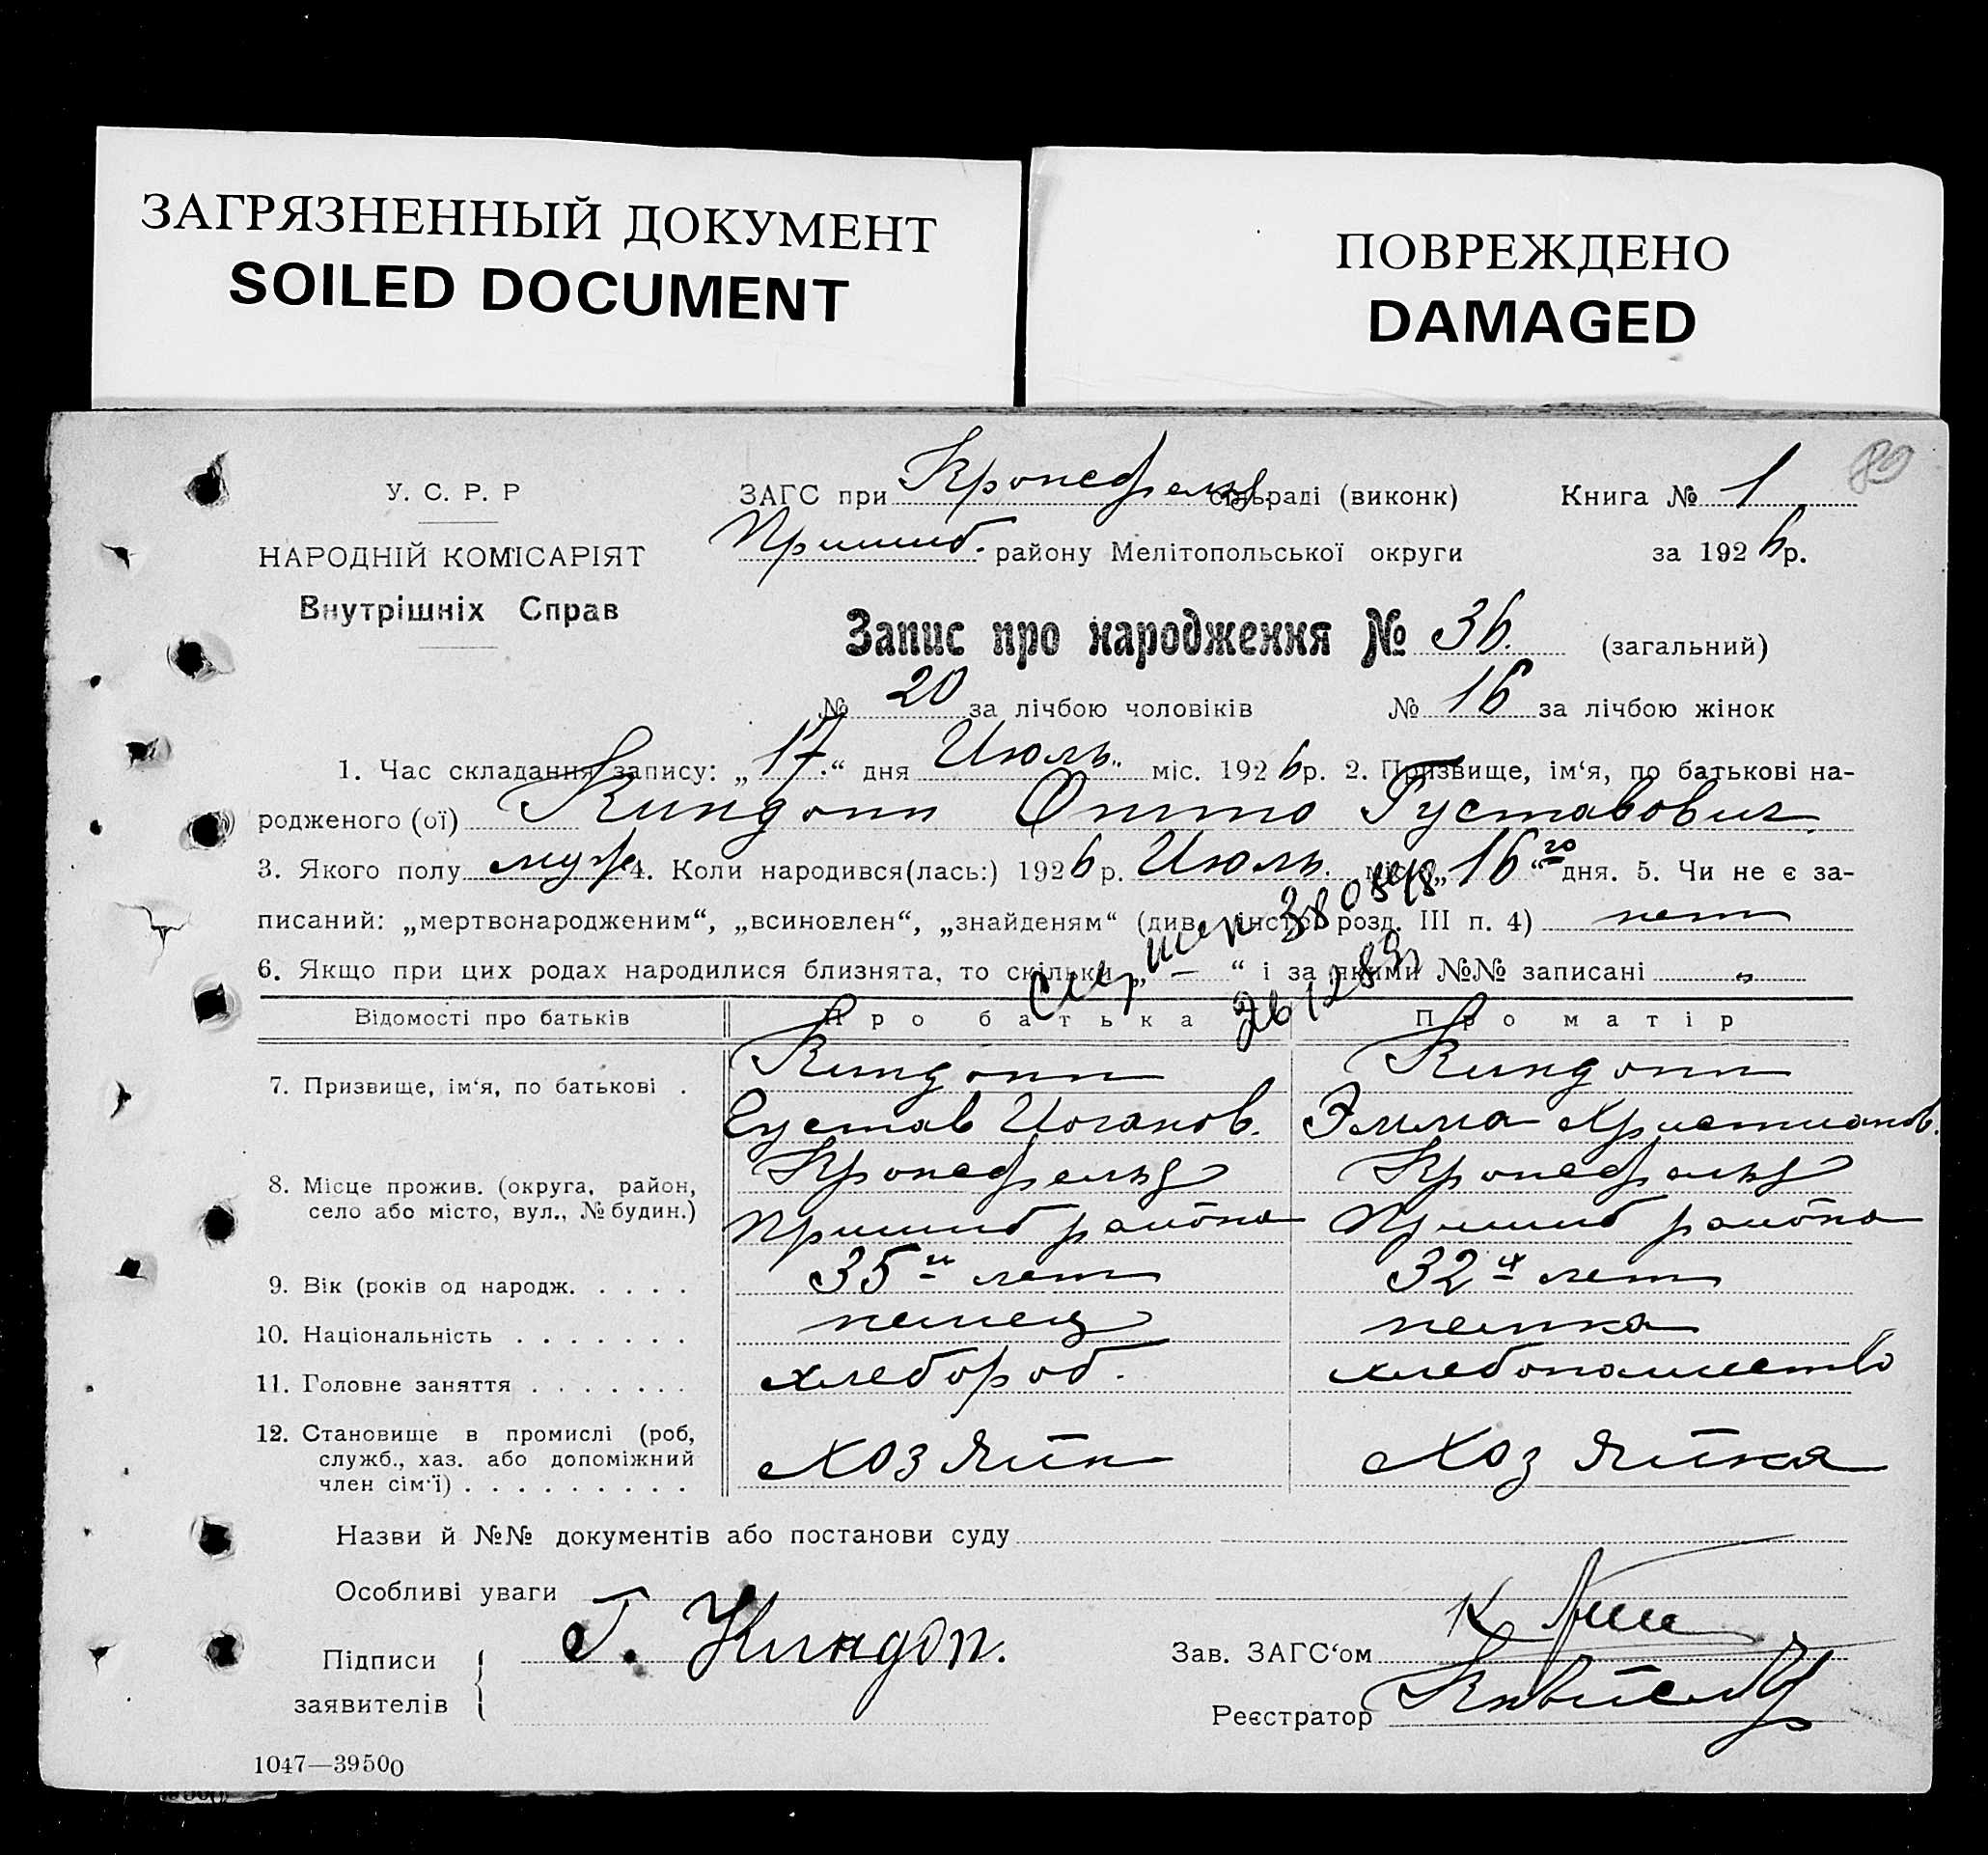 ЗАГРЯЗНЕННЫЙ ДОКУМЕНТ
SOILED DOCUMENT
ПОВРЕЖДЕНО
DAMAGED
89
У. С. Р. Р
НАРОДНІЙ КОМІСАРІЯТ
Внутрішніх Справ
ЗАГС при Кронефельд. сільраді (виконк) Книга № 1
Пришиб. району Мелітопольської округи за 1926 р.
Запис про народження № 36. (загальний)
№ 20 за лічбою чоловіків № 16 за лічбою жінок
1. Час складання запису: „17.“ дня Июль. міс. 1926 р. 2. Призвище, ім‘я, по батькові на-
родженого (ої) Киндопп Отто Густавович
3. Якого полу муж 4. Коли народився(лась:) 1926 р. Июль. міс. „16го“ дня. 5. Чи не є за-
писаний: „мертвонародженим“, „всиновлен“, „знайденям“ (див. інстр. розд. III п. 4) нет
6. Якщо при цих родах народилися близнята, то скільки „ — “ і за якими №№ записані „
Відомості про батьків Про батька Про матір
7. Призвище, ім‘я, по батькові . Киндопп Киндопп
Густав Иоганов. Эмма Христианов.
8. Місце прожив. (округа, район, село або місто, вул., № будин.) Кронефельд Кронефельд
Пришиб района Пришиб района
9. Вік (років од народж. . . . . 35и лет 32х лет
10. Національність . . . . . . . немец немка
11. Головне заняття . . . . . . . хлебороб. хлебопашество
12. Становище в промислі (роб, служб., хаз. або допоміжний член сім‘ї) . . . . . . . . . Хозяин Хозяйка
Назви й №№ документів або постанови суду
Особливі уваги
Підписи заявителів Г. Киндоп.
Зав. ЗАГС‘ом
Реєстратор
1047—39500